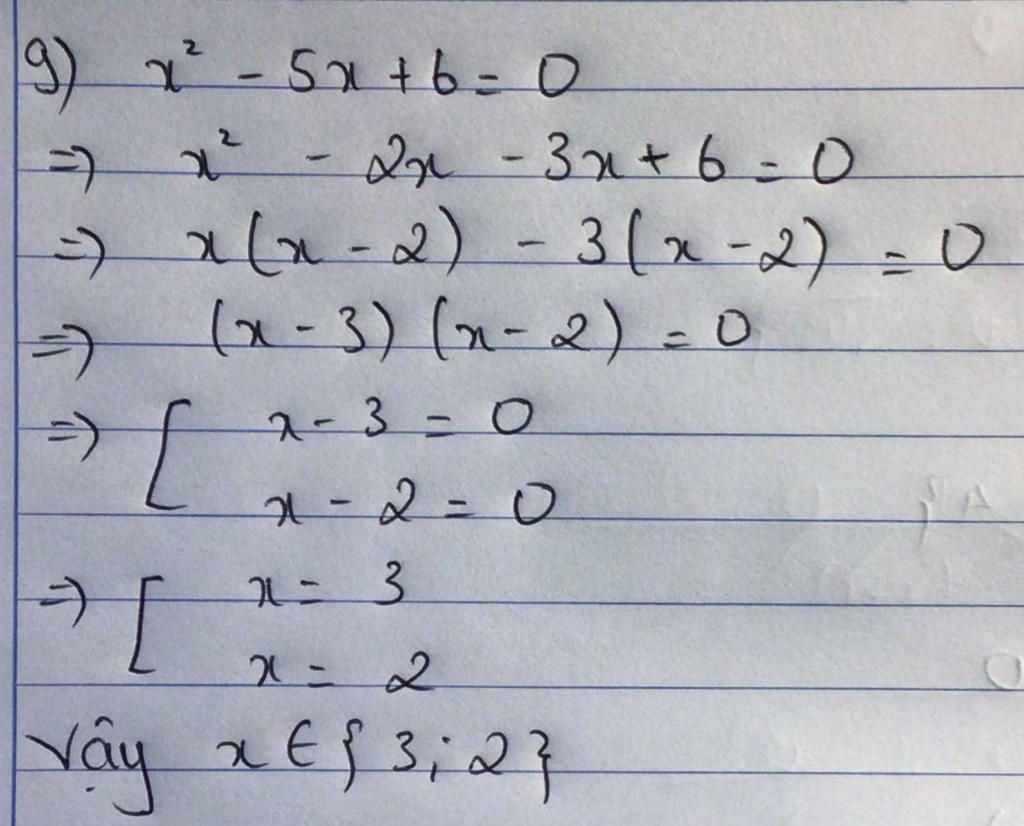 g) x² - 5x + 6 = 0
=> x² - 2x - 3x + 6 = 0
=> x(x - 2) - 3(x - 2) = 0
=> (x - 3) (x - 2) = 0
=> [ x - 3 = 0
x - 2 = 0
=> [ x = 3
x = 2
Vậy x ∈ { 3 ; 2 }